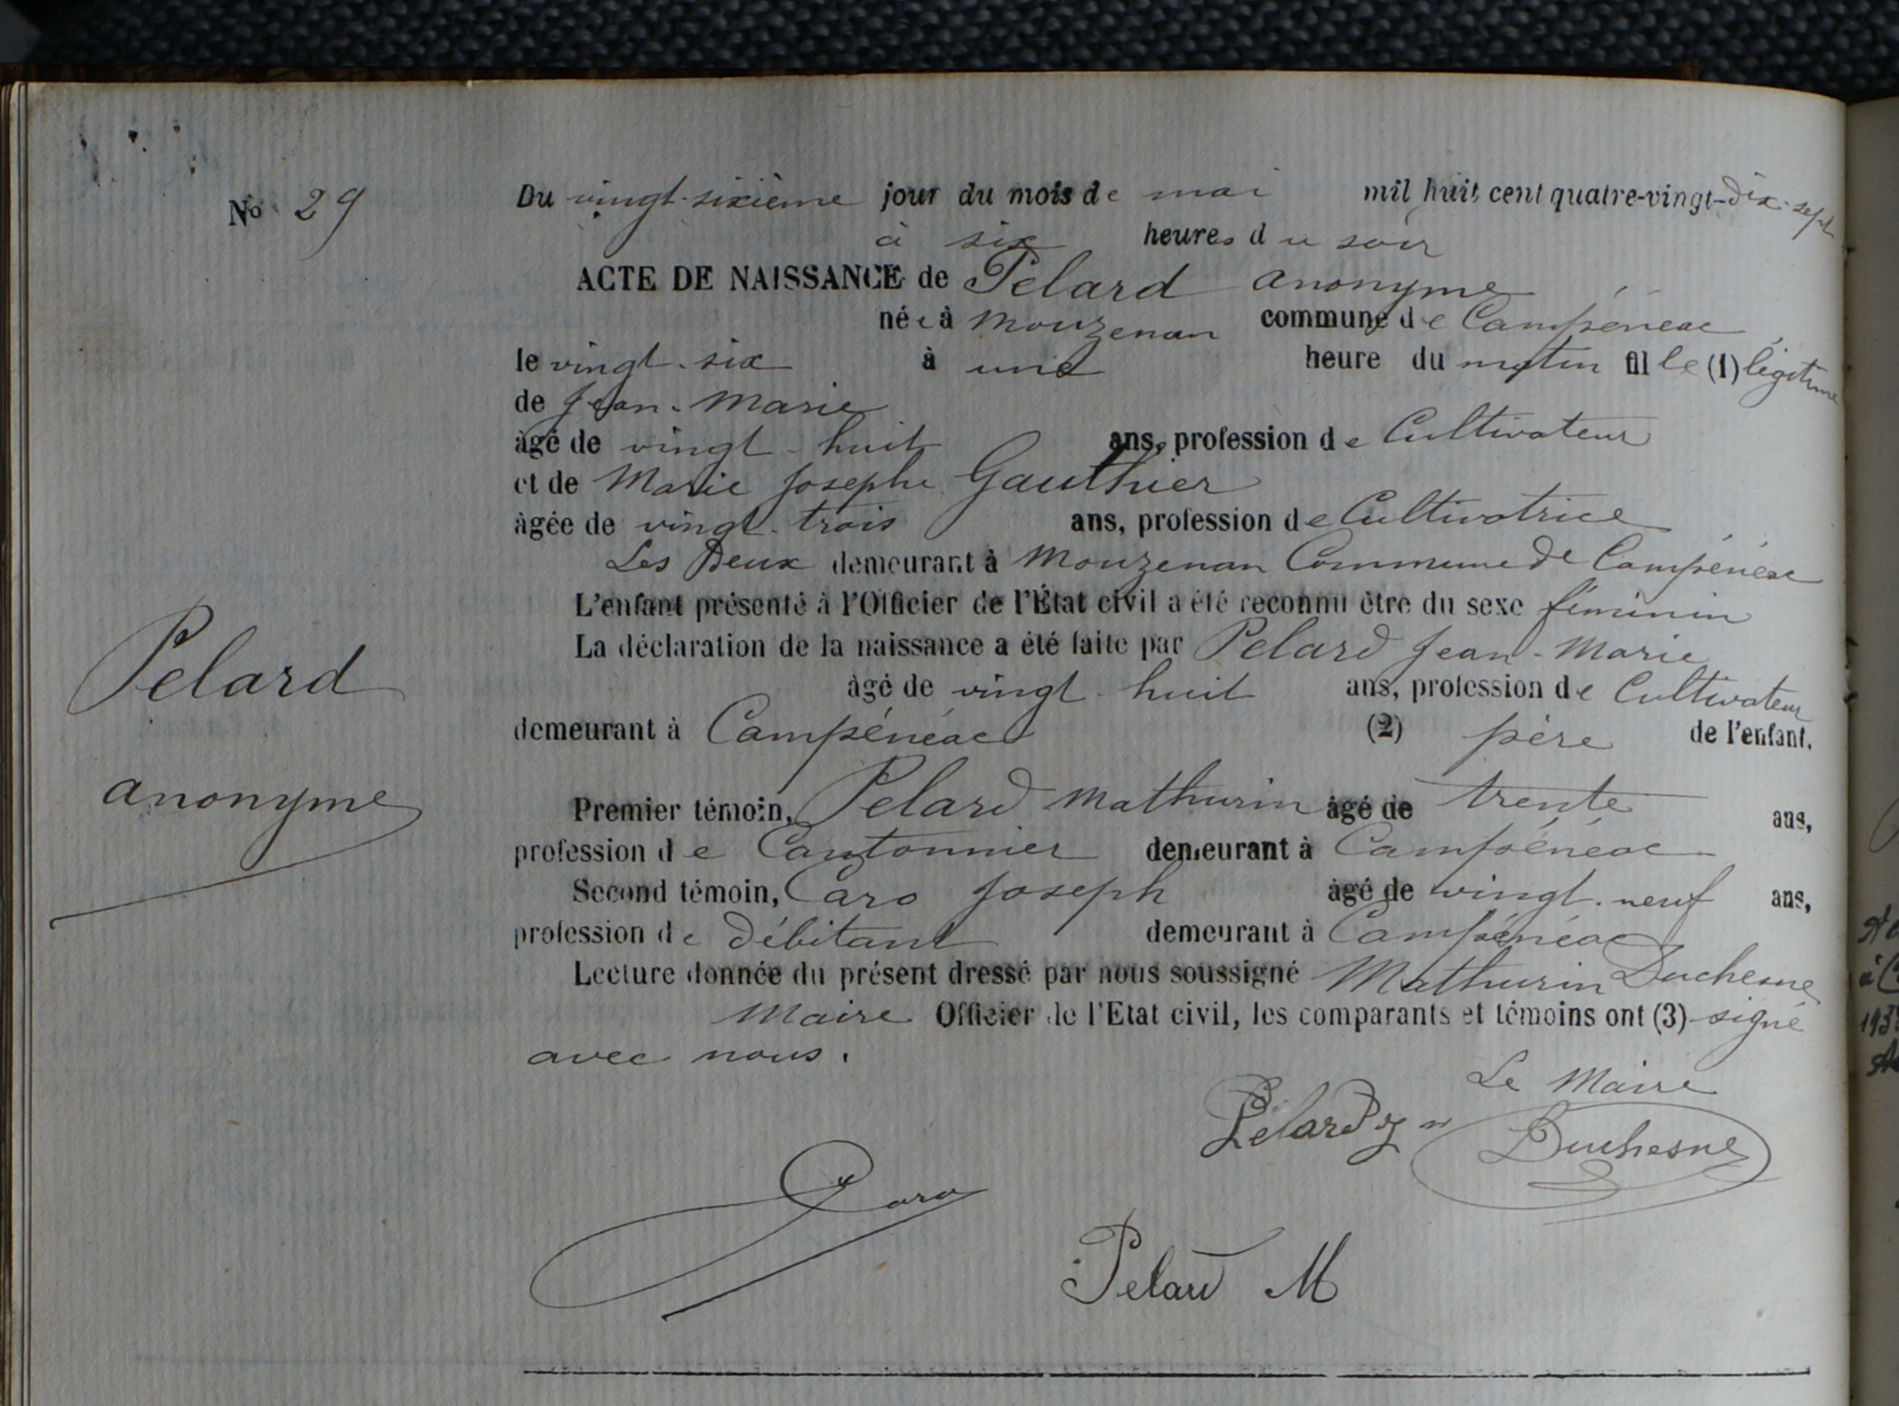 No 29
Du vingt-sixième jour du mois de mai mil huit cent quatre-vingt-dix-sept
à six heures du soir
ACTE DE NAISSANCE de Pelard anonyme
née à Mouzenan commune de Campénéac
le vingt-six à une heure du matin fille (1) légitime
de Jean-Marie
âgé de vingt-huit ans, profession de Cultivateur
et de Marie Josephe Gauthier
âgée de vingt-trois ans, profession de Cultivatrice
Les Deux demeurant à Mouzenan Commune de Campénéac
L'enfant présenté à l'Officier de l'État civil a été reconnu être du sexe féminin
La déclaration de la naissance a été faite par Pelard Jean-Marie
âgé de vingt-huit ans, profession de Cultivateur
demeurant à Campénéac (2) père de l'enfant.
Pelard
anonyme
Premier témoin, Pelard Mathurin âgé de trente ans,
profession de Cantonnier demeurant à Campénéac
Second témoin, Caro Joseph âgé de vingt-neuf ans,
profession de Débitant demeurant à Campénéac
Lecture donnée du présent dressé par nous soussigné Mathurin Duchesne
Maire Officier de l'Etat civil, les comparants et témoins ont (3) signé
avec nous.
Le Maire
Pelard
Duchesne
Caro
Pelard M